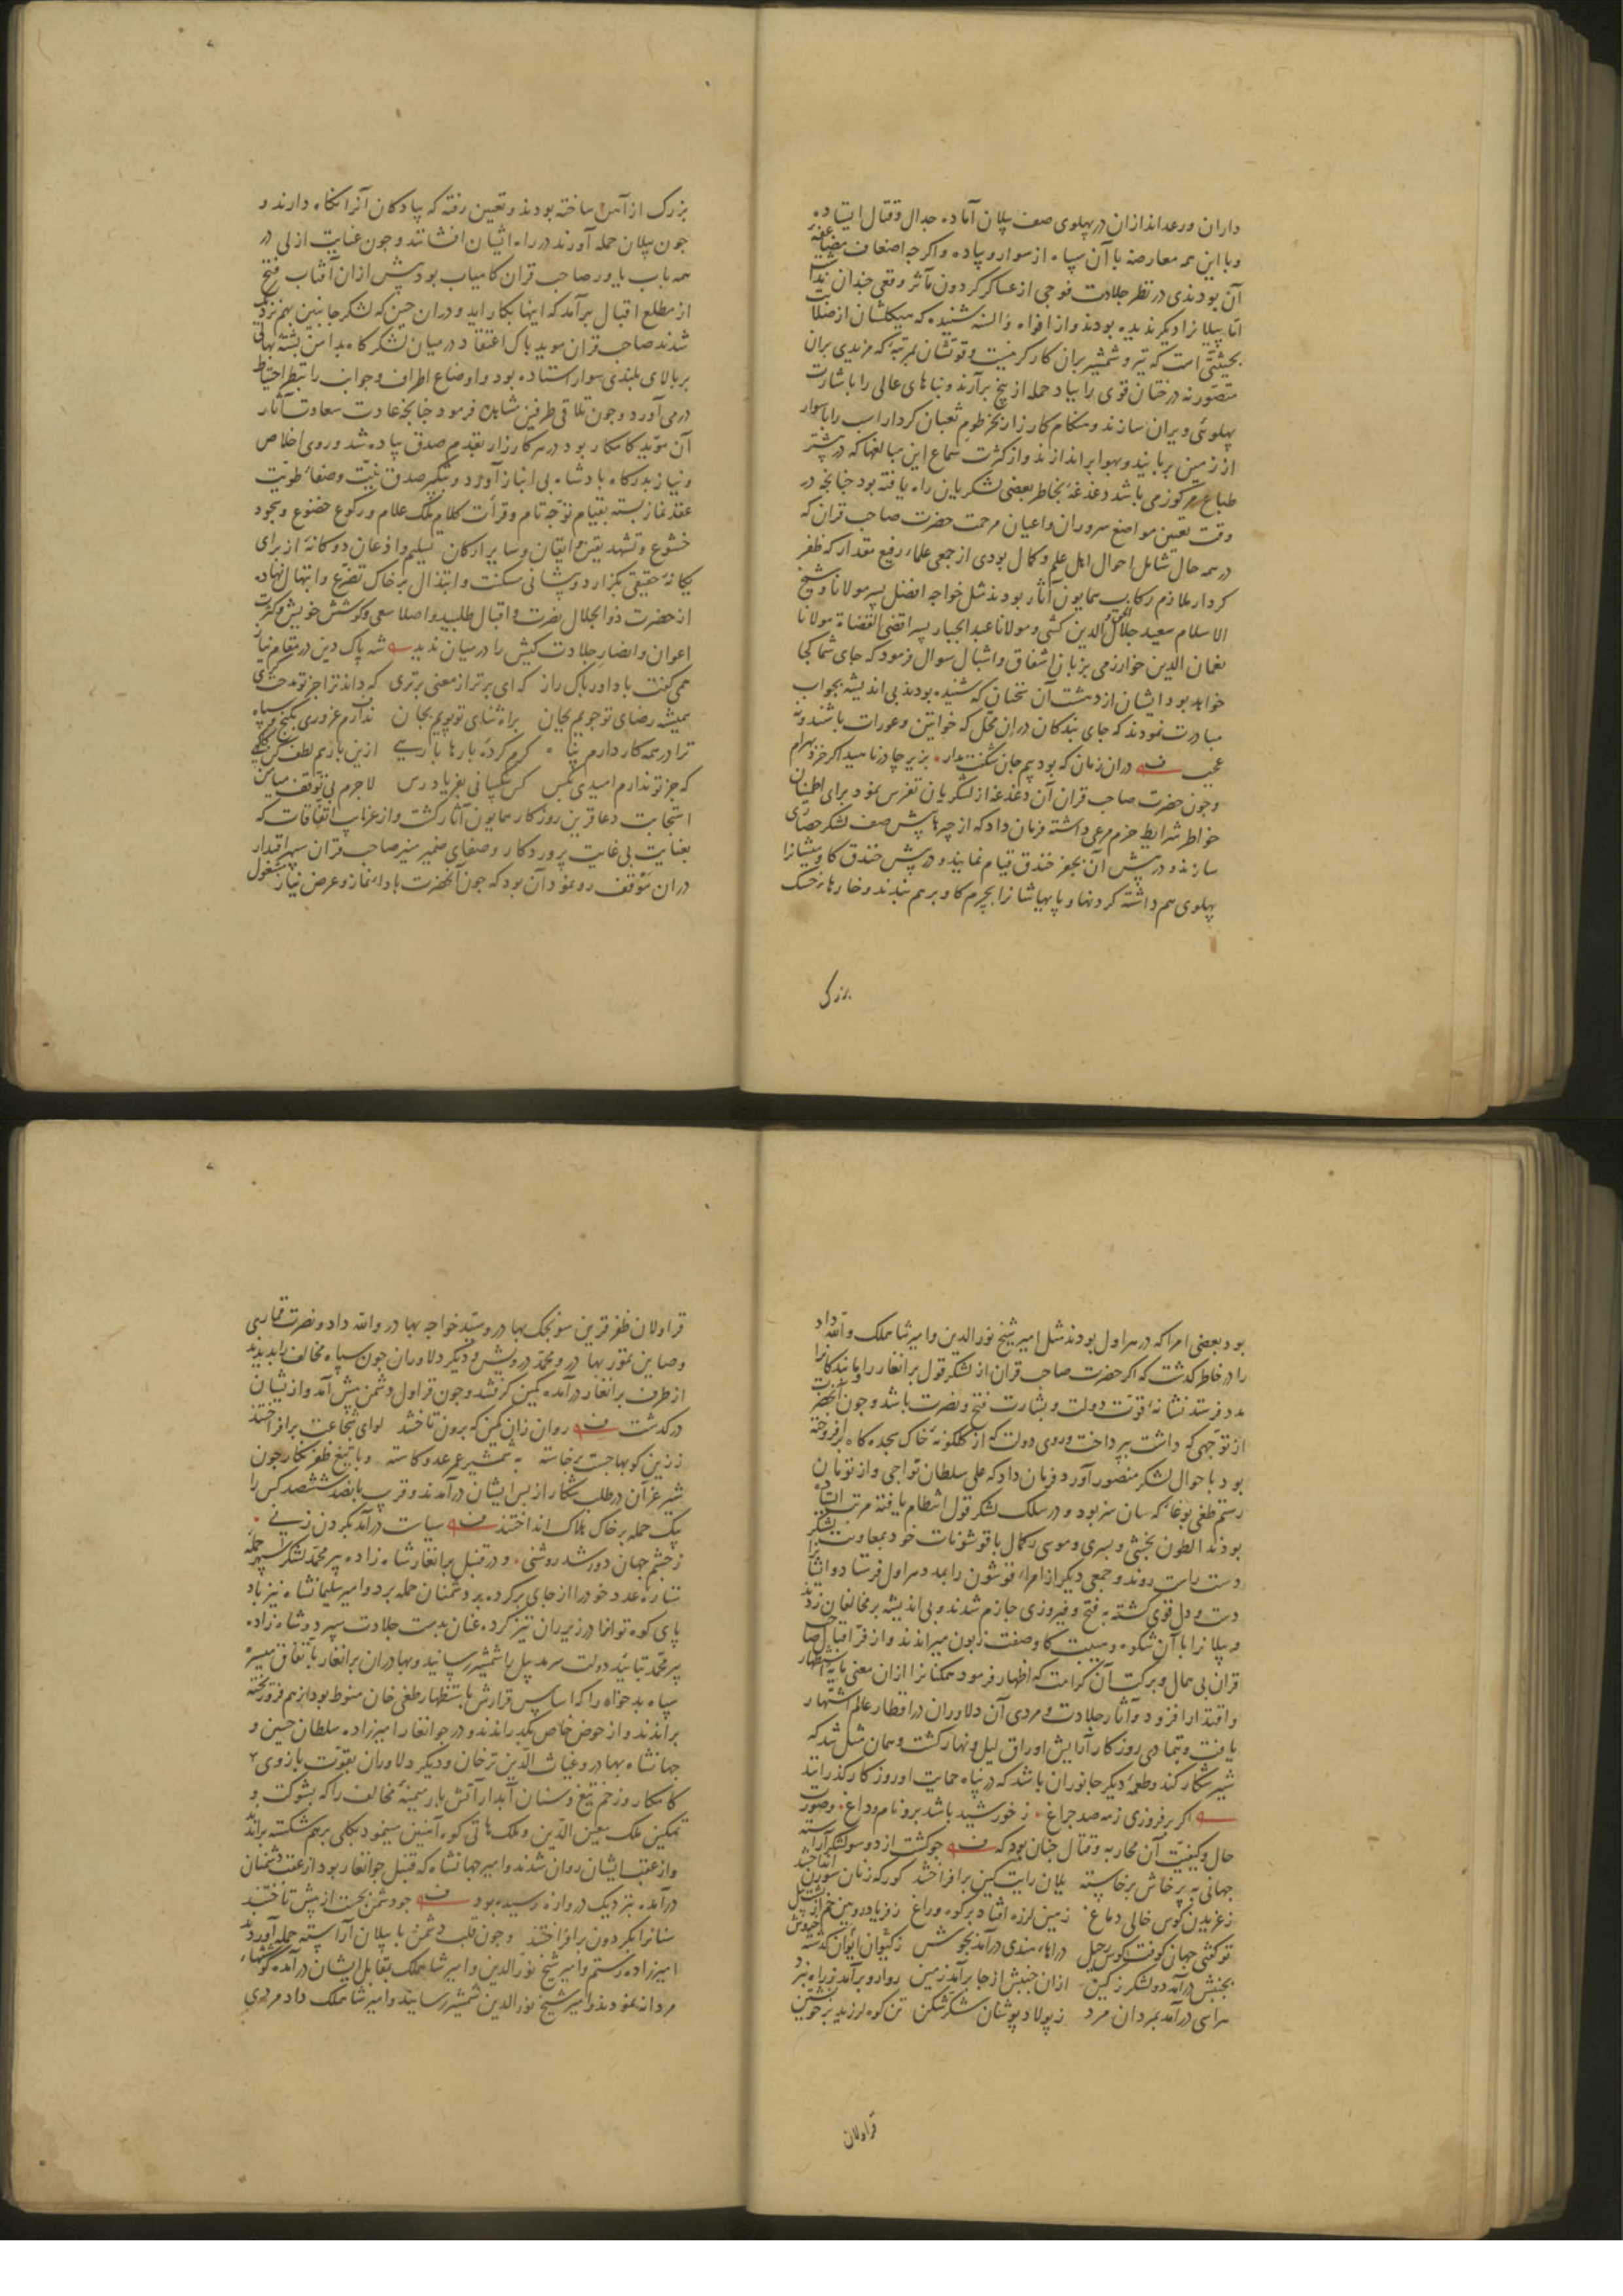 داران ورعداندازان در پهلوی صف پیلان آماده جدال وقتال ایستاده
وبا این همه معارضه با آن سپاه از سوار و پیاده واکرچه اضعاف مضاعفه
آن بودندی در نظر جلادت فوجی از عساکر کردون مآثر وقعی چندان نداشت
اما پیلانرا دیکر ندیده بودند واز افواه والسنه شنیده که هیکلشان از صلابت
بحیثیتی است که تیر و شمشیر بران کارکر نیست وقوتشان بمرتبه که مزیدی بران
متصور نه درختان قوی را بباد حمله از بیخ برآرند وبناهای عالی را باشارت
پهلوئی ویران سازند وهنکام کارزار بخرطوم ثعبان کردار اسب را با سوار
از زمین بربایند وبهوا براندازند واز کثرت سماع این مبالغها که در بیشتر
طباع مرکوز می باشد دغدغه بخاطر بعضی لشکریان راه یافته بود چنانچه در
وقت تعیین مواضع سروران واعیان مرحمت حضرت صاحب قران که
در همه حال شامل احوال اهل علم وکمال بودی از جمعی علماء رفیع مقدار که ظفر
کردار ملازم رکاب همایون آثار بودند مثل خواجه افضل پسر مولانا شیخ
الاسلام سعید جلال الحق والدین کشی ومولانا عبد الجبار پسر اقضی القضاة مولانا
نعمان الدین خوارزمی بزبان اشفاق واشبال سوال فرمود که جای شما کجا
خواهد بود ایشان از دهشت آن سخنان که شنیده بودند بی اندیشه بجواب
مبادرت نمودند که جای بندکان دران محل که خواتین وعورات باشند ونه
عجب دران زمان که بود بیم جان شکفت مدار بزیر چادر ناهید اکر خزد بهرام
وچون حضرت صاحب قران آن دغدغه از لشکریان تفرس نمود برای اطمینان
خواطر شرایط حزم مرعی داشته فرمان داد که از چپرها پیش صف لشکر حصاری
سازند ودر پیش آن بحفر خندق قیام نمایند ودر پیش خندق کاومیشانرا
پهلوی هم داشته کردنها وپایهاشانرا بچرم کاو برهم بندند وخارها خسک
بزرک
بزرک از آهن ساخته بودند وتعیین رفته که پیادکان آنرا نکاه دارند و
چون پیلان حمله آورند در راه ایشان افشانند وچون عنایت ازلی در
همه باب یاور صاحب قران کامیاب بود پیش ازان آفتاب فتح
از مطلع اقبال برآمد که اینها بکار آید ودران حین که لشکر جانبین بهم نزدیک
شدند صاحب قران موید پاک اعتقاد در میان لشکرکاه بدامن پشته بهالی
بربالای بلندی سوار استاده بود واوضاع اطراف وجوانب را بنظر احتیاط
درمی آورد وچون تلاقی طرفین مشاهده فرمود چنانچه عادت سعادت آثار
آن مؤید کامکار بود در هر کارزار بقدم صدق پیاده شد وروی اخلاص
ونیاز بدرکاه پادشاه بی انباز آورد وتکبیر صدق نیت وصفاء طویت
عقد نماز بسته بقیام توجه تام وقرأت کلام ملک علام ورکوع خضوع وسجود
خشوع وتشهد یقین وایقان وسایر ارکان تسلیم واذعان دوکانه از برای
یکانه حقیقی بکزارد وپیشانی مسکنت وابتذال بر خاک تضرع وابتهال نهاده
از حضرت ذو الجلال نصرت واقبال طلبید واصلا سعی وکوشش خویش وکثرت
اعوان وانصار جلادت کیش را در میان ندید شه پاک دین در مقام نیاز
همی کفت با داور پاک راز که ای برتر از معنی برتری که داند ترا جز تو مدحت کری
همیشه رضای تو جویم بجان براه ثنای تو پویم بجان ندارم غروری بکنج وسپاه
ترا در همه کار دارم پناه کرم کردۀ بارها یا رب ازین باز هم لطف کن یکدمی
که جز تو ندارم امیدی بکس کس بیکسانی بفریاد رس لاجرم بی توقف میامن
استجابت دعا قرین روزکار همایون آثار کشت واز غرایب اتفاقات که
بعنایت بی غایت پروردکار وصفای ضمیر منیر صاحب قران سپهر اقتدار
دران موقف رو نمود آن بود که چون آنحضرت باداء نماز وعرض نیاز مشغول
بود بعضی امرا که در هراول بودند مثل امیر شیخ نور الدین وامیر شاهملک والله داد
را در خاطر کذشت که اکر حضرت صاحب قران از لشکر قول برانغار را با بندکانرا
مدد فرستد نشانه قوت دولت وبشارت فتح ونصرت باشد وچون آنحضرت
از توجهی که داشت بپرداخت وروی دولت که از کلکونه خاک سجده کاه برافروخته
بود باحوال لشکر منصور آورد فرمان داد که علی سلطان تواجی واز تومان
رستم طغی بوغا که سان سزبود ودر سلک لشکر قول انتظام یافته مرتب ایستاده
بودند الطون بخشی وسری وموسی رکمال با قوشونات خود بمعاونت لشکر
دست راست روند وجمعی دیکر از امراء قوشون را بمدد هراول فرستاد وایشانرا
دست ودل قوی کشته به فتح وفیروزی جازم شدند وبی اندیشه بر مخالفان زدند
وپیلانرا با آن شکوه وهیبت کاو صفت زبون میراندند واز فر اقبال صاحب
قران بی همال وبرکت آن کرامت که اظهار فرمود همکنانرا ازان معنی پایه استظهار
واقتدار افزود وآثار جلادت ومردی آن دلاوران در اقطار عالم اشتهار
یافت وبتمادی روزکار آرایش اوراق لیل ونهار کشت وهمان مثل شد که
شیر شکار کند وطعمه دیکر جانوران باشد که در پناه حمایت او روزکار کذرانند
اکر برفروزی زمه صد چراغ ز خورشید باشد برو نام وداغ وصورت
حال وکیفیت آن محاربه وقتال چنان بود که چو کشت از دو سو لشکر آراسته
جهانی به پرخاش برخاسته یلان رایت کین برافراختند کورکه زنان سورن انداختند
زغریدن کوس خالی دماغ زمین لرزه افتاد بر کوه وراغ زفریاد رویین خم از پشت پیل
تو کفتی جهان کوفت کوس رحیل درای هندی درآمد بجوش زکیوان ایوان کذشته خروش
بجنبش درآمد دو لشکر زکین ازان جنبش از جا برآمد زمین روارو برآمد ز راه نبرد
هراسی درآمد بمردان مرد زپولاد پوشان لشکر شکن تن کوه لرزید بر خویشتن
قراولان
قراولان ظفر قرین سونجک بهادر وسید خواجه بهادر والله داد ونصرت قماری
وصاین تمور بهادر ومحمد درویش ودیکر دلاوران چون سپاه مخالف را بدیدند
از طرف برانغار درآمده کمین کرفتند وچون قراول دشمن پیش آمد وازیشان
درکذشت روان زان کمین که برون تاختند لوای شجاعت برافراختند
ززین کوبها جست برخاسته به شمشیر عمر عدو کاسته وبا تیغ ظفر نکار چون
شیر غران در طلب شکار از پس ایشان درآمدند وقرب پانصد ششصد کس را
بیک حمله بر خاک هلاک انداختند سیاست درآمد بکردن زنی
زچشم جهان دور شد روشنی ودر قنبل برانغار شاه زاده پیر محمد لشکر سپهر حمله
ستاره عدد خود را از جای برکرده بر دشمنان حمله برد وامیر سلیمانشاه نیز باد
پای کوه توانرا در زیر ران تیز کرده عنان بدست جلادت سپرد وشاه زاده
پیر محمد بتائید دولت سرمد پیل را شمشیر رسانید وبهادران برانغار باتفاق میسره
سپاه بدخواه را که اساس قرارش باستظهار طغی خان منوط بود از هم فروریخته
براندند واز حوض خاص بکذراندند ودر جوانغار امیرزاده سلطان حسین و
جهانشاه بهادر وغیاث الدین ترخان ودیکر دلاوران بقوت بازوی
کامکار وزخم تیغ وسنان آبدار آتش بار میمنه مخالف را که بشوکت و
تمکین ملک معین الدین وملک هانی کوه آهنین مینمود بکلی برهم شکسته براندند
واز عقب ایشان روان شدند وامیر جهانشاه که قنبل جوانغار بود از عقب دشمنان
درآمده بنزدیک دروازه رسیده بود چو دشمن بجست از پیش تاختند
سنانرا بکردون برافراختند وچون قلب دشمن با پیلان آراسته حمله آوردند
امیرزاده رستم وامیر شیخ نور الدین وامیر شاهملک بتقابل ایشان درآمده کوششهاء
مردانه نمودند وامیر شیخ نور الدین شمشیر رسانید وامیر شاهملک داد مردی